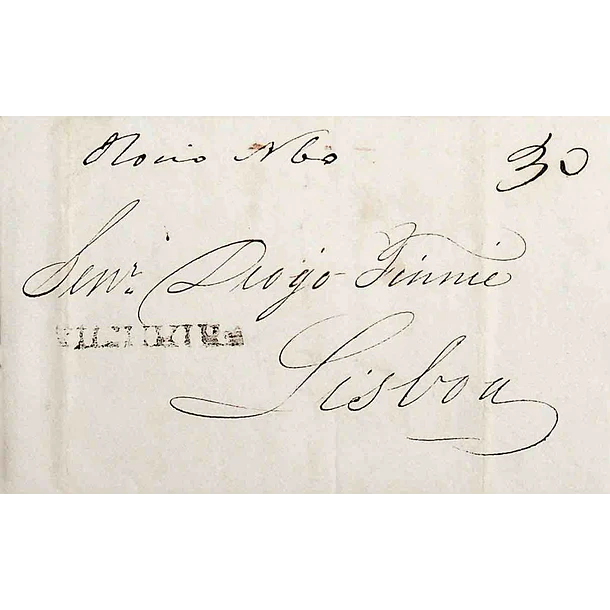 Rocio N 60
30
Senr. Diogo Finnie
Lisboa